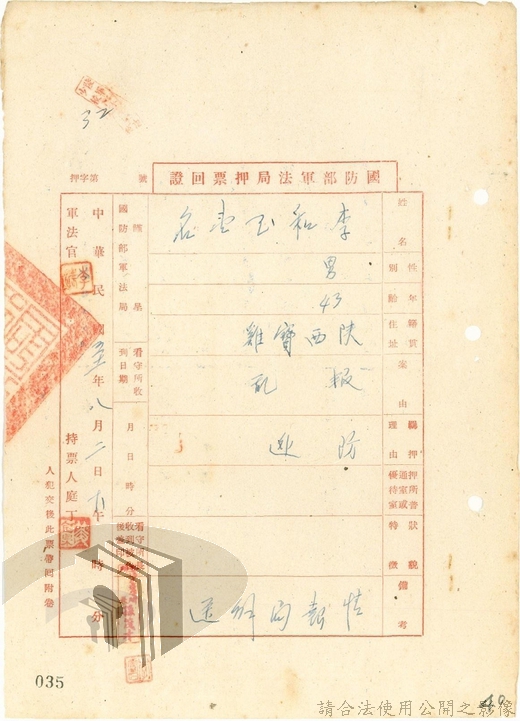 32
國防部軍法局押票回證
字第 號 押
姓名 李和玉壹名
性別 男
年齡 43
籍貫 住址 陝西寶雞
案由 叛亂
羈押理由 防逃
押所普通室或優待室
特徵 狀貌
備考 情報局解送
謹呈
國防部軍法局
看守所收到日期 月 日 時 分
看守所收到被告後蓋印
中華民國五年八月二日 午 時 分
軍法官
持票人庭丁
人犯交後此票帶回附卷
035
40
請合法使用公開之影像